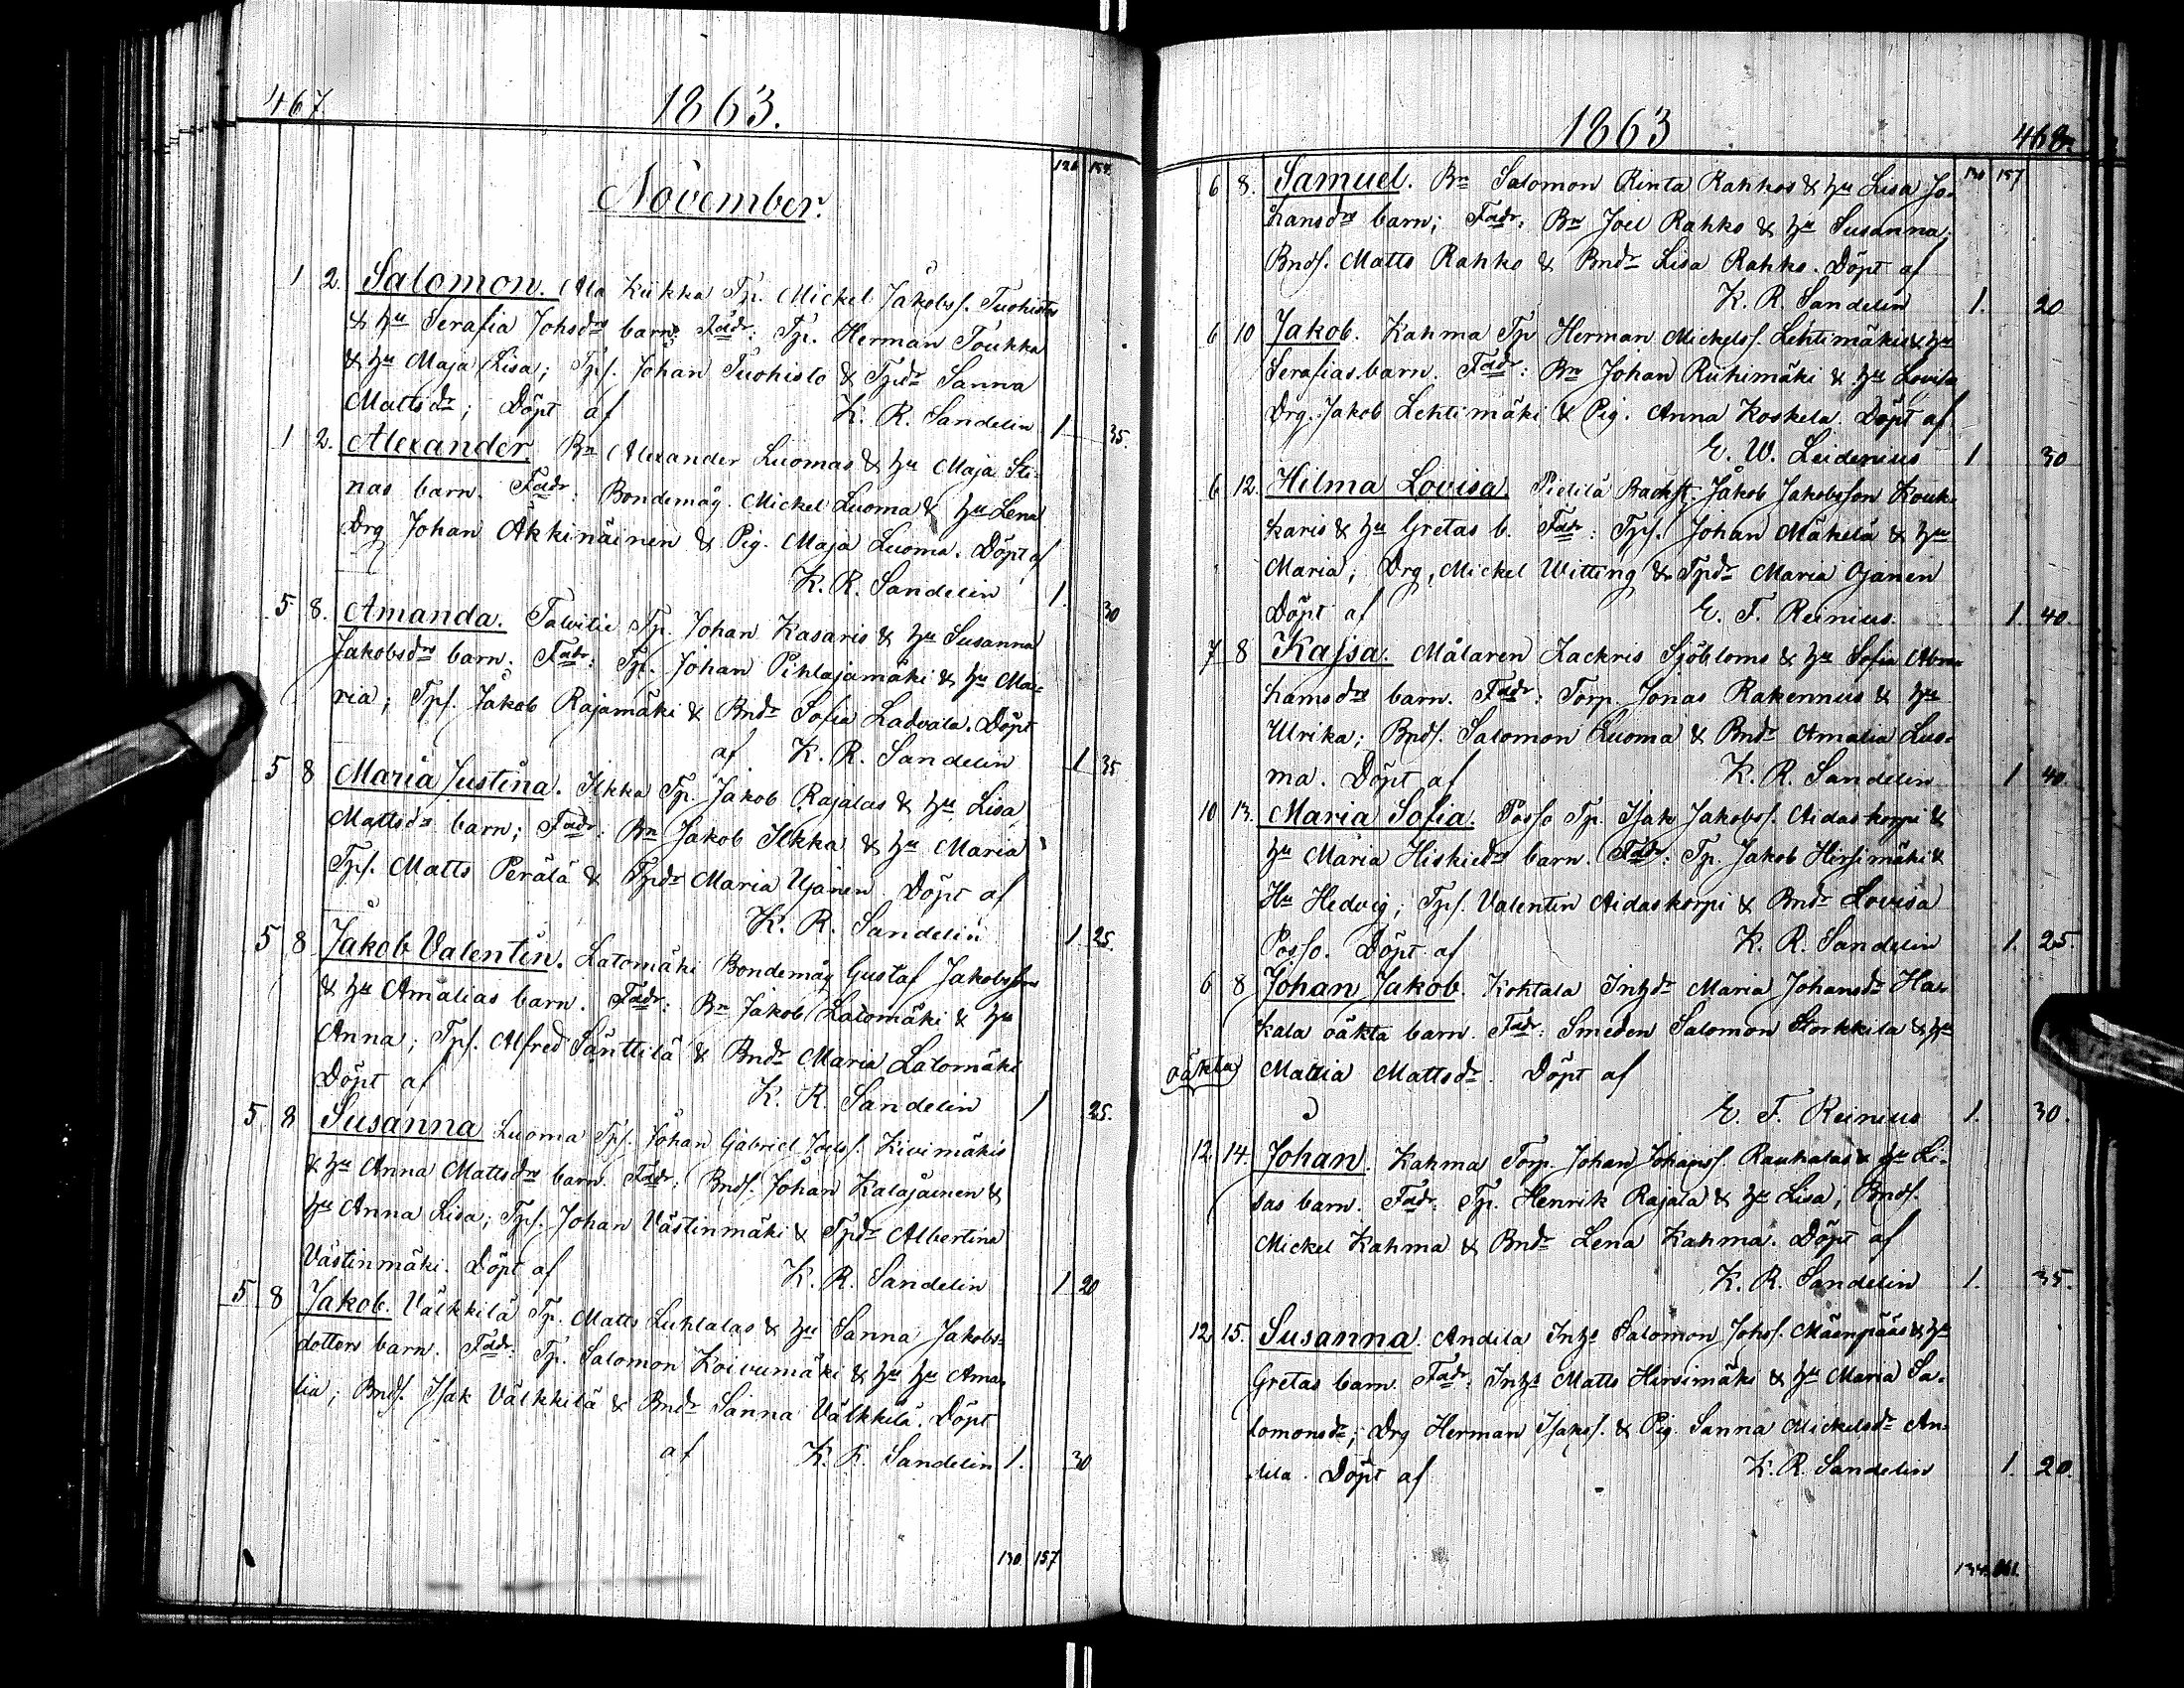 467 1863.
126 154.
November.
1 2. Salomon. Ala Kiikka Tp. Mickel Jakobss. Tuohistos
& hu Serafia Johsdrs barn; Fadr: Tp. Herman Toukka
& hu Maja Lisa; Tps. Johan Tuohisto & Tpdr Sanna
Mattsdr; Döpt af K. R. Sandelin 1 35.
1 2. Alexander. Bn Alexander Luomas & hu Maja Sti-
nas barn. Fadr: Bondemåg Mickel Luoma & hu Lena
Drg Johan Äkkinäinen & Pig. Maja Luoma. Döpt af
K. R. Sandelin 1. 30
5 8. Amanda. Talvitie Tp. Johan Kasaris & hu Susanna
Jakobsdrs barn. Fadr: Tp. Johan Pihlajamäki & hu Ma-
ria; Tps. Jakob Rajamäki & Bndr Sofia Ladvala. Döpt
af K. R. Sandelin 1 35
5 8 Maria Justina. Ilkka Tp. Jakob Rajalas & hu Lisa
Mattsdrs barn; Fadr: Bn Jakob Ilkka & hu Maria
Tps. Matts Perälä & Tpdr Maria Ujanen. Döpt af
K. R. Sandelin 1 25.
5 8 Jakob Valentin. Latomäki Bondemåg Gustaf Jakobssons
& hu Amalias barn. Fadr: Bn Jakob Latomäki & hu
Anna; Tps. Alfred Sänttilä & Bndr Maria Latomäki
Döpt af K. R. Sandelin 1 25.
5 8 Susanna Luoma Tps. Johan Gabriel Joels. Kivimäkis
& hu Anna Mattsdrs barn. Fadr: Bnds. Johan Kalajainen &
hu Anna Lisa; Tps. Johan Västinmäki & Tpdr Albertina
Västinmäki. Döpt af K. R. Sandelin 1 20
5 8 Jakob. Välkkilä Tp. Matts Luhtalas & hu Sanna Jakobs-
dotters barn. Fadr: Tp. Salomon Koivumäki & hu hu Ama-
lia; Bnds. Isak Välkkilä & Bndr Sanna Välkkilä. Döpt
af K. R. Sandelin 1. 30
130 157
1863 468.
130 157
6 8. Samuel. Bn Salomon Rinta Rahkos & hu Lisa Jo-
hansdrs barn; Fadr: Bn Joel Rahko & hu Susanna;
Bnds. Matts Rahko & Bndr Lisa Rahko. Döpt af
K. R. Sandelin 1. 20
6 10 Jakob. Kahma Tp Herman Mickelss. Lehtimäkis & hu
Serafias barn. Fadr: Bn Johan Riihimäki & hu Lovisa
Drg. Jakob Lehtimäki & Pig. Anna Koskela. Döpt af
E. W. Leidenius 1 30
6 12. Hilma Lovisa. Pietilä Backst. Jakob Jakobsson Kouk-
karis & hu Gretas b. Fadr: Tps. Johan Mäkelä & hu
Maria; Drg. Mickel Witting & Tpdr Maria Ojanen
Döpt af E. F. Reinius. 1. 40.
7 8 Kajsa. Målaren Zackris Sjöbloms & hu Sofia Abra-
hamsdrs barn. Fadr: Torp. Jonas Rakennus & hu
Ulrika; Bnds. Salomon Luoma & Bndr Amalia Luo-
ma. Döpt af K. R. Sandelin 1 40.
10 13. Maria Sofia. Posso Tp. Isak Jakobss. Aidaskorpi &
hu Maria Hiskiedrs barn. Fadr: Tp. Jakob Hirsimäki &
Hu Hedvig; Tps. Valentin Aidaskorpi & Bndr Lovisa
Posso. Döpt af K. R. Sandelin 1. 25.
6 8 Johan Jakob. Kohtala Inhdr Maria Johansdr Ha-
kala oäkta barn. Fadr: Smeden Salomon Storkkila & hu
oäkta Maria Mattsdr. Döpt af
E. F. Reinius 1. 30.
12. 14. Johan. Kahma Torp. Johan Johanss. Rauhalas & hu Li-
sas barn. Fadr: Tp. Henrik Rajala & hu Lisa; Bnds.
Mickel Kahma & Bndr Lena Kahma. Döpt af
K. R. Sandelin 1. 35.
12 15. Susanna. Andila Inhs Salomon Johss. Mäenpääs & hu
Gretas barn. Fadr: Inhs Matts Hirsimäki & hu Maria Sa-
lomonsdr; Drg Herman Isakss. & Pig. Sanna Mickelsdr An-
dila. Döpt af K. R. Sandelin 1. 20.
134. 161.